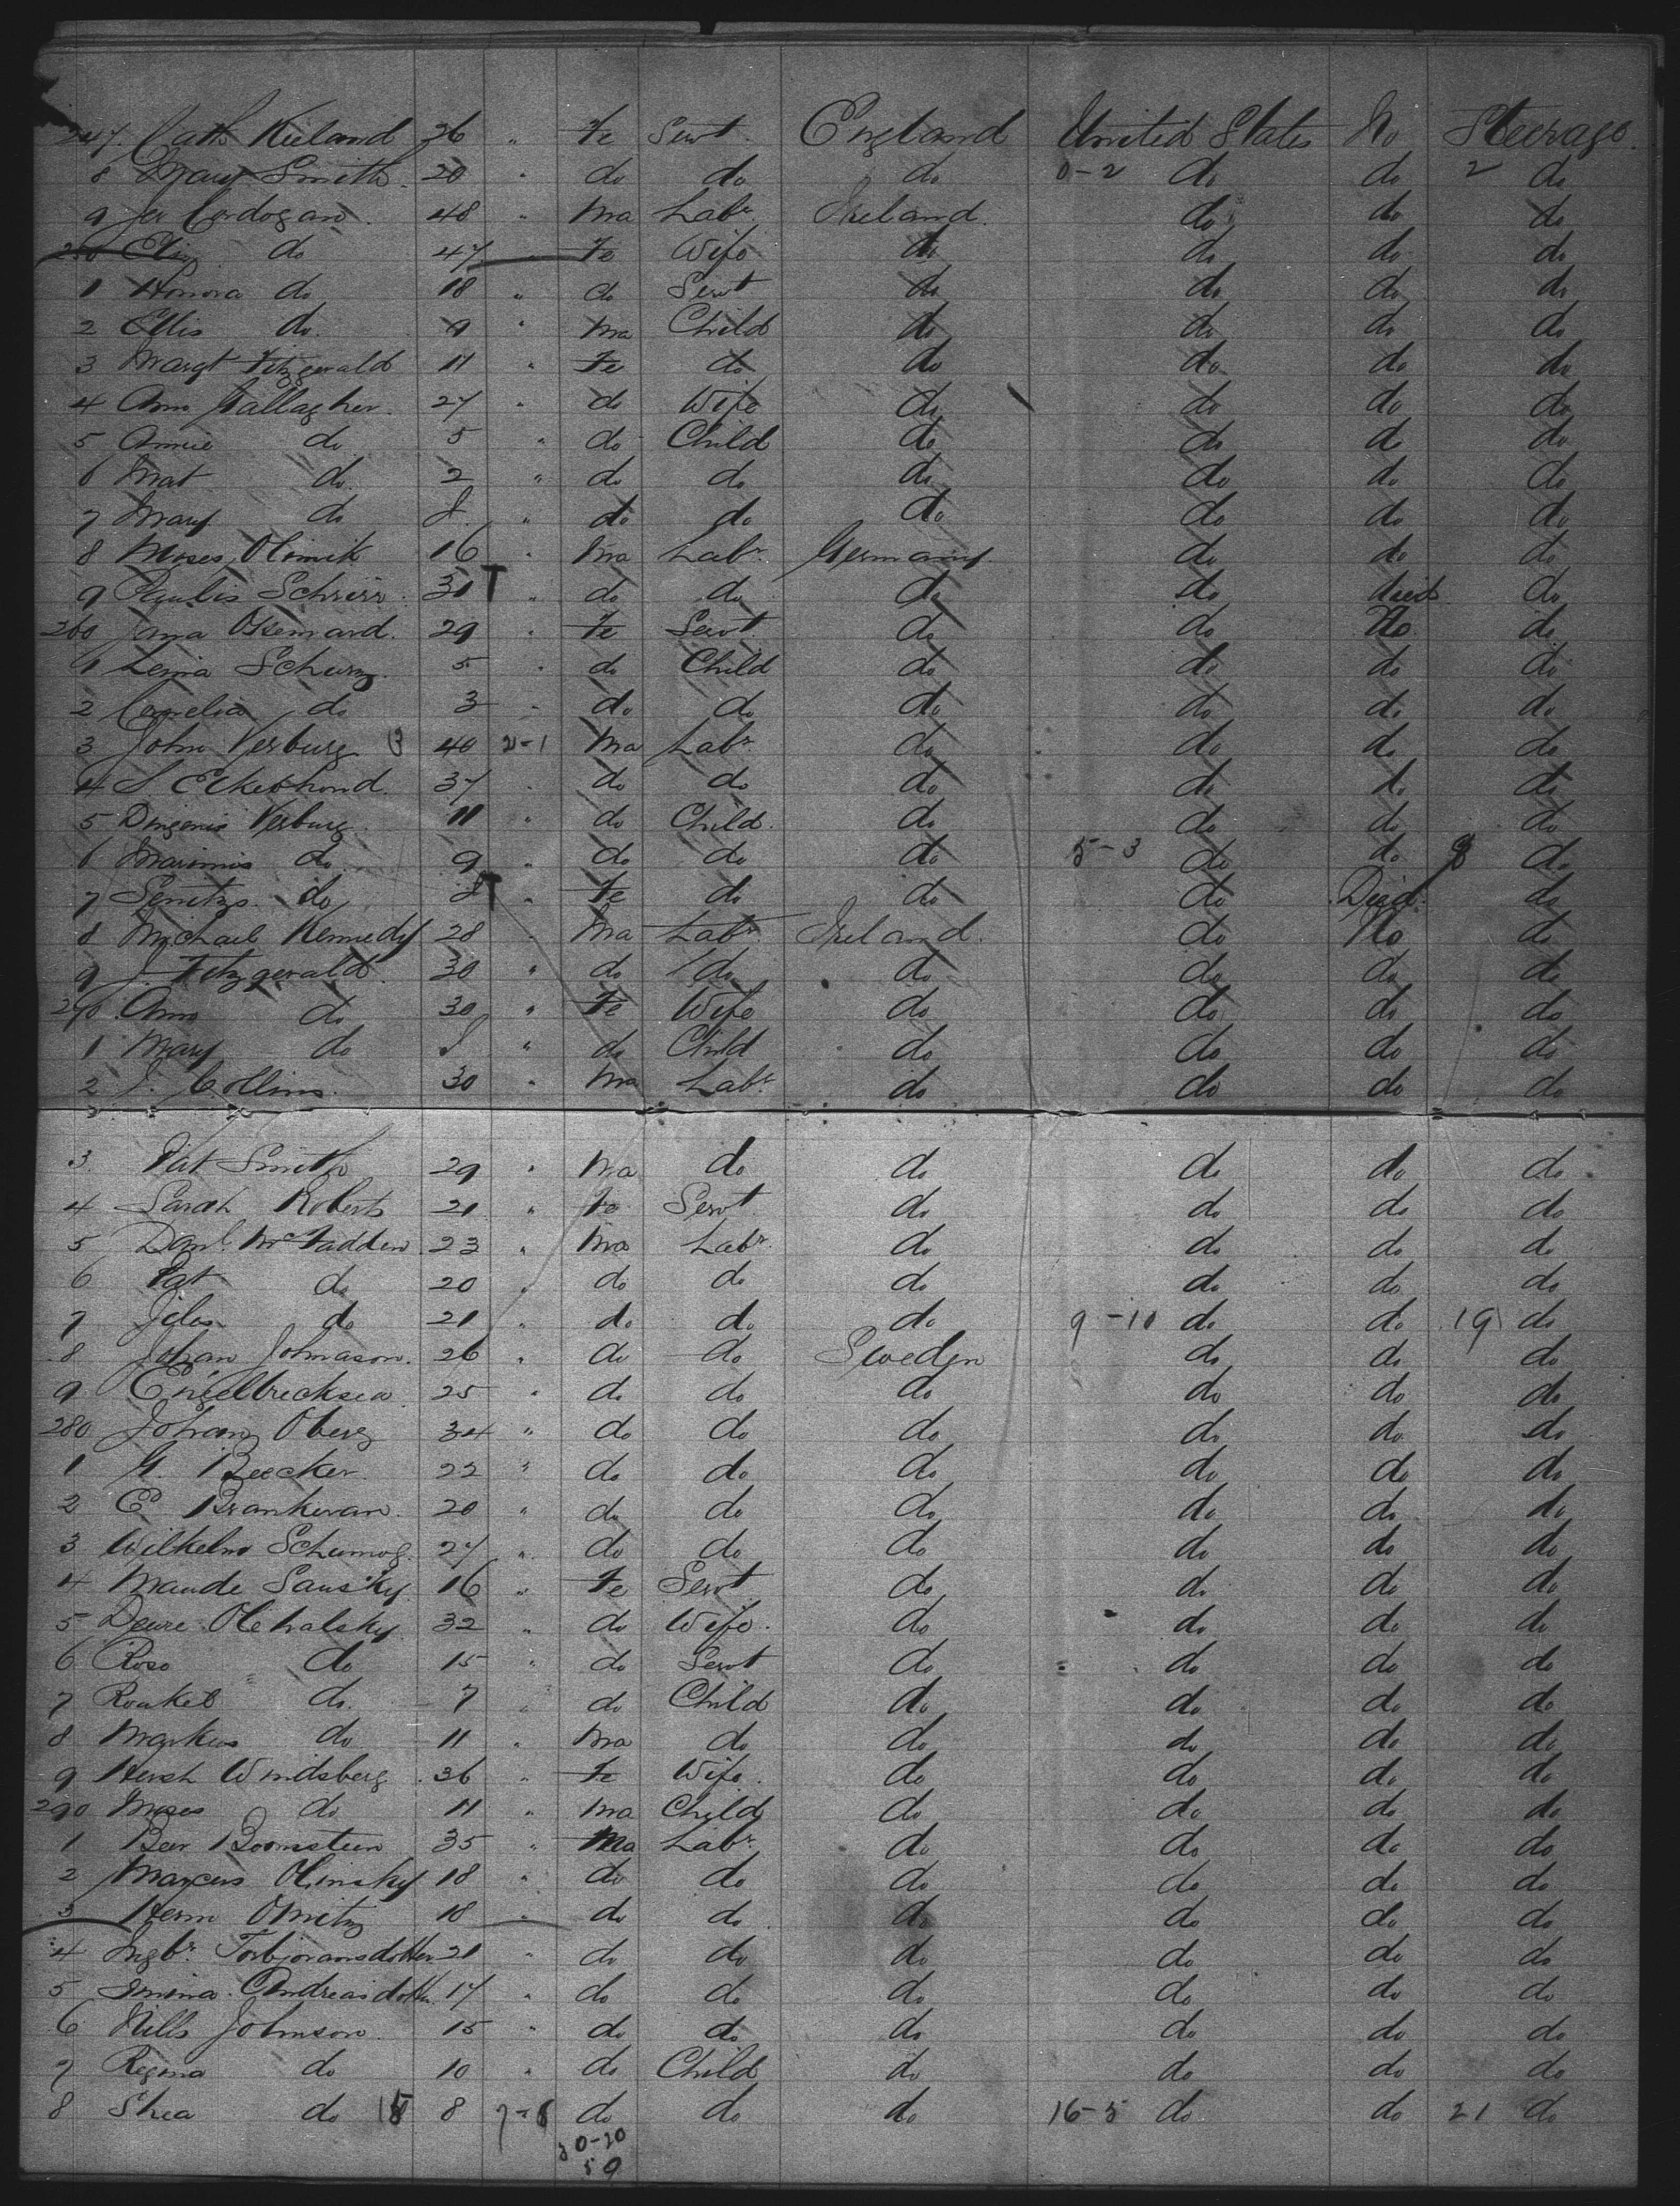 247. Cath Kieland 26 " Fe Servt. England United States No Steerage.
8 Mary Smith. 20 " do do do 0-2 do do 2 do
9 Jer Cordogan. 48 " Ma Labr. Ireland. do do do
250 do 47 " Fe Wife do do do do
1 Honora do 18 " do Servt do do do do
2 Ellis do. 9 " Ma Child do do do do
3 Margt Fitzgerald 11 " Fe do do do do do
4 Ann Gallagher. 27 " do Wife do do do do
5 Annie do 5 " do Child do do do do
6 Mat do. 2 " do do do do do do
7 Mary do " do do do do do do
8 Moses Olimik 16 " Ma Labr. Germany. do do do
9 Schrier. 30 T " do do do do died do
260 29 " Fe Servt. do do No. do
1 Lena Schurz. 5 " do Child do do do do
2 Cornelia do 3 " do do do do do do
3 John Verburg 3 40 21-1 Ma Labr do do do do
4 S. Eckebhond. 37 " do do do do do do
5 Verburg. 11 " do Child. do do do do
6 Marinus do 9 " do do do 5-3 do do 8 do
7 do T " Fe do do do Died. do
8 Michael Kennedy 28 " Ma Labr. Ireland. do No do
9 J. Fitzgerald. 30 " do do do do do do
270. Ann do 30 " Fe Wife do do do do
1 Mary do " do Child do do do do
2 J. Collins. 30 " Ma Labr. do do do do
3. Pat Smith 29 " Ma do do do do do
4 Sarah Roberts 21 " Fe Servt do do do do
5 Danl. McFadden 23 " Ma Labr. do do do do
6 Pat do 20 " do do do do do do
7 do 21 " do do do 9-10 do do 19 do
8 Johan Johnason. 26 " do do Sweden do do do
9 Engelbrecksea 25 " do do do do do do
280 Johan Oberg 34 " do do do do do do
1 G. Becker. 22 " do do do do do do
2 C Brankevan. 20 " do do do do do do
3 Wilhelm Schumog. 27 " do do do do do do
4 Maude Sausky. 16 " Fe Servt do do do do
5 Olehalsky. 32 " do Wife. do do do do
6 Rosa do 15 " do Servt do do do do
7 Rouket do. 7 " do Child do do do do
8 Markus do 11 " Ma do do do do do
9 Hersh Windsberg 36 " Fe Wife. do do do do
290 Moses do 11 " Ma Child do do do do
1 Beer Boomsteen 35 " Ma Labr. do do do do
2 Marcus Olinsky 18 " do do do do do do
3 Herm Omitz 18 " do do do do do do
4 Ingbr. Torbjoransdotter 21 " do do do do do do
5 Andreasdottr. 17 " do do do do do do
6 Nills Johnson. 15 " do do do do do do
7 Regina do 10 " do Child do do do do
8 Shea do 15 8 7-8 do do do 16-5 do do 21 do
30-20
59